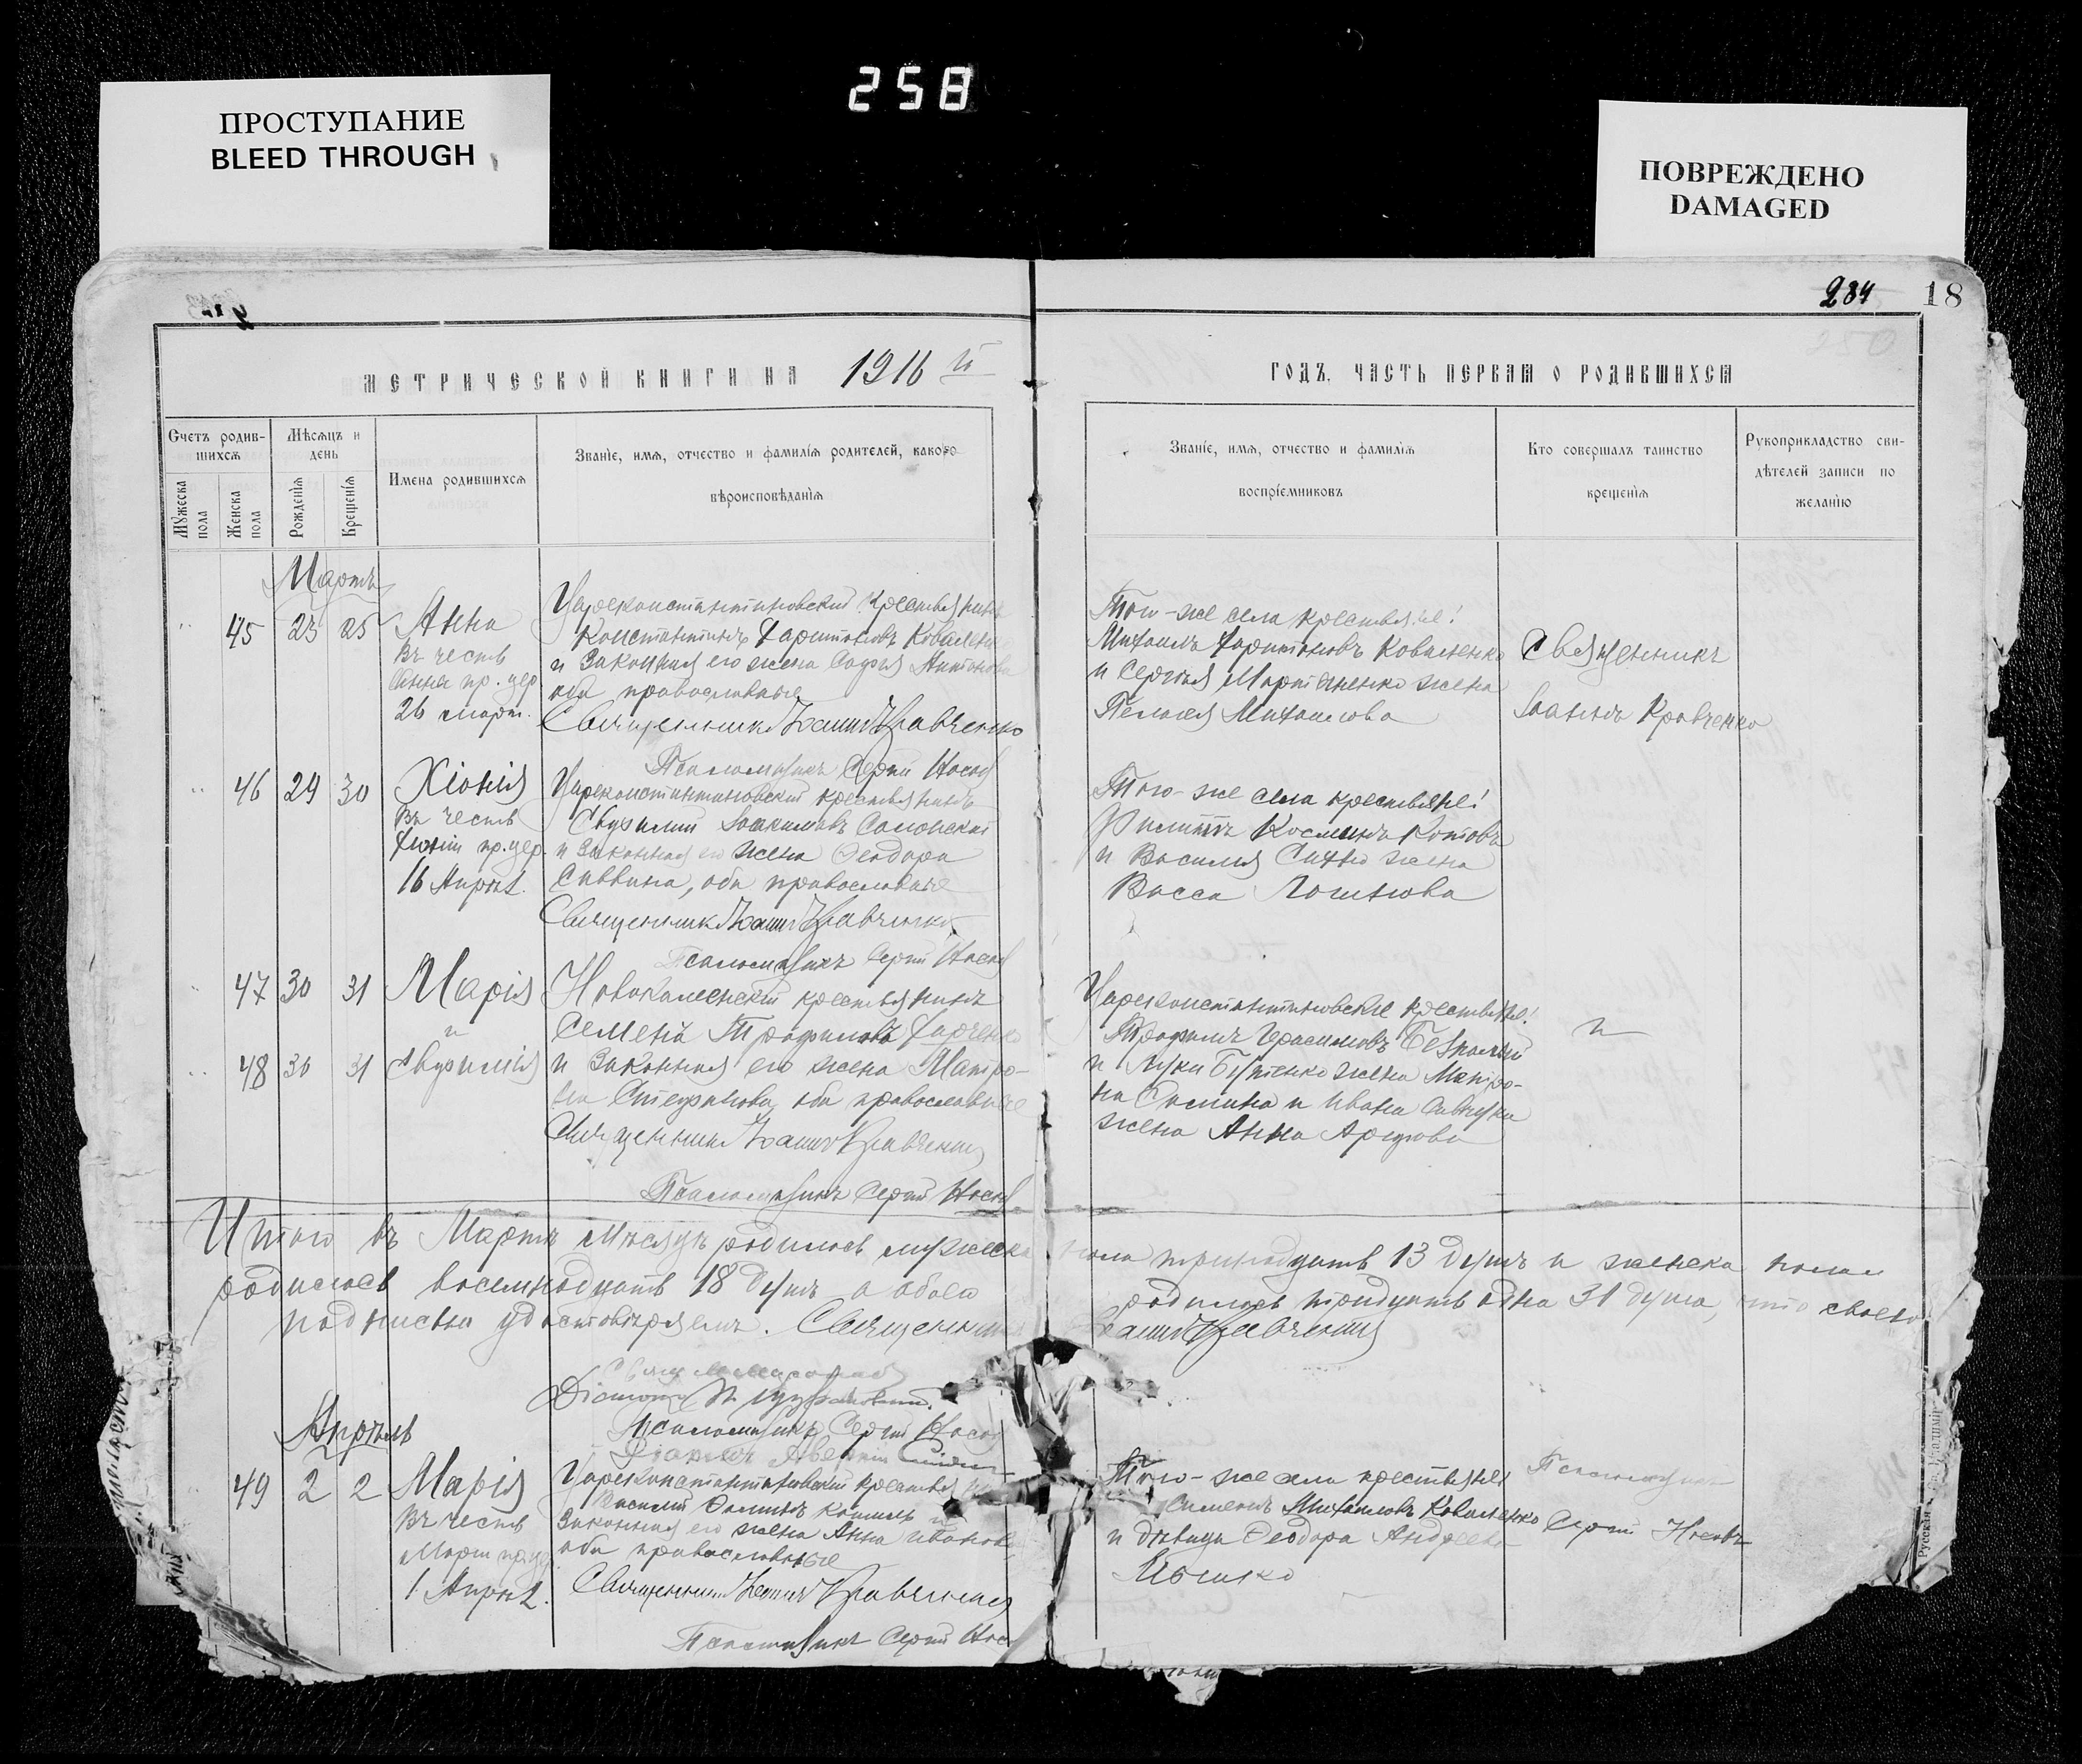 258
ПРОСТУПАНИЕ
BLEED THROUGH
ПОВРЕЖДЕНО
DAMAGED
284 18
МЕТРИЧЕСКОЙ КНИГИ НА 1916 й
ГОДЪ, ЧАСТЬ ПЕРВАЯ О РОДИВШИХСЯ
Счетъ родив-
шихся
Мужеска пола
Женска пола
Мѣсяцъ и
день
Рожденія
Крещенія
Имена родившихся
Званіе, имя, отчество и фамилія родителей, какого
вѣроисповѣданія
Званіе, имя, отчество и фамилія
воспріемниковъ
Кто совершалъ таинство
крещенія
Рукоприкладство сви-
дѣтелей записи по
желанію
Мартъ
45 23 25 Анна
Въ честь
пр. цер
26 март.
Цареконстантиновскій крестьянинъ
Константинъ Харитоновъ Коваленко
и законная его жена Софья Антонова
оба православные
Священникъ Іоаннъ Кравченко
Псаломщикъ Сергій Носов
Того-же села крестьяне:
Михаилъ Харитоновъ Коваленко
и Сергѣя Мартыненко жена
Пелагея Михайлова
Священникъ
Іоаннъ Кравченко
46 29 30 Хіонія
Въ честь
Хіоніи пр. цер.
16 Апрѣл.
Цареконстантиновскій крестьянинъ
Іоакимовъ
и законная его жена Ѳеодора
Саввина, оба православные
Священникъ Іоаннъ Кравченко
Псаломщикъ Сергій Носов
Того-же села крестьяне:
Филиппъ Косминъ Котовъ
и Василія жена
Васса Логинова
47 30 31 Марія
и
48 30 31 Евфимія
Новокаменскій крестьянинъ
Семенъ Трофимовъ Харченко
и законная его жена Матро-
на Стефанова, оба православные
Священникъ Іоаннъ Кравченко
Псаломщикъ Сергій Носов
Цареконстантиновскіе крестьяне:
Трофимъ Герасимовъ
и Луки Бутенко жена Матро-
на и Ивана
жена Анна
Итого въ Мартѣ мѣсяцѣ родилось мужеска пола тринадцать 13 душъ и женска пола
родилось восемнадцать 18 душъ а обоего родилось тридцать одна 31 душа, что своею
подписью удостовѣряемъ. Священникъ Іоаннъ Кравченко
Псаломщикъ Сергій Носов
Апрѣль
49 2 2 Марія
Въ честь
1 Апрѣл.
Цареконстантиновскій крестьянинъ
Василій
законная его жена Анна Иванова
оба православные
Священникъ Іоаннъ Кравченко
Псаломщикъ Сергій Носов
Того-же села крестьяне:
Михайловъ Коваленко
и дѣвица Ѳеодора Андреева
Псаломщикъ
Сергій Носовъ